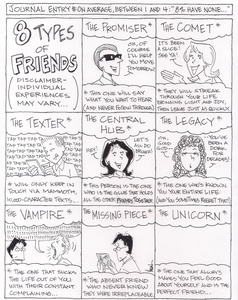 JOURNAL ENTRY # ON AVERAGE, BETWEEN 1 AND 4: "8'S HAVE NONE..."
8 TYPES
OF
FRIENDS
DISCLAIMER-
INDIVIDUAL
EXPERIENCES
MAY VARY...
THE PROMISER
OH, OF
COURSE
I'LL HELP
YOU MOVE
TOMORROW!
* THIS ONE WILL SAY
WHAT YOU WANT TO HEAR
(AND NEVER FOLLOW THROUGH)
THE COMET
IT'S BEEN
A SLICE!
SEE YA!
* THEY WILL STREAK
THROUGH YOUR LIFE
BRINGING LIGHT AND JOY,
THEN LEAVE JUST AS QUICKLY
THE TEXTER
TAP TAP TAP TAP
* WILL ONLY KEEP IN
TOUCH VIA MAMMOTH,
CHARACTER TEXTS.
THE CENTRAL
HUB
HEY!
LET'S
ALL DO
* THIS PERSON IS THE ONE
WHO IS THE GLUE THAT HOLDS
ALL THE OTHER FRIENDS TOGETHER
THE LEGACY
YOU'VE
BEEN A
FOR
DECADES!
* THE ONE WHO'S KNOWN
YOU YOUR ENTIRE LIFE
(AND YOU SOMETIMES REGRET THAT)
THE VAMPIRE
* THE ONE THAT SUCKS
THE LIFE OUT OF YOU
WITH THEIR CONSTANT
COMPLAINING...
THE MISSING PIECE
* THE ABSENT FRIEND
WHO NEVER KNEW
THEY WERE IRREPLACEABLE
THE UNICORN
* THE ONE THAT ALWAYS
MAKES YOU FEEL GOOD
ABOUT YOURSELF AND IS THE
PERFECT FRIEND...